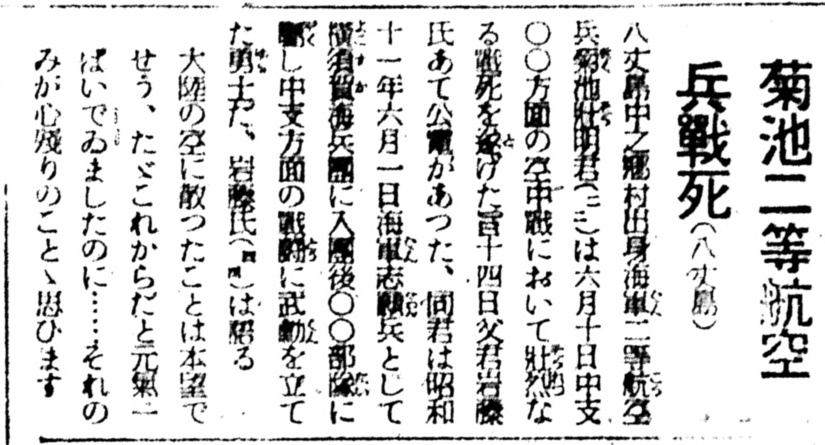 菊池二等航空
兵戰死(八丈島)
八丈島中之鄕村出身海軍二等航空
兵菊池壯明君(二二)は六月十日中支
〇〇方面の空中戰において壯烈な
る戰死を遂げた旨十四日父君岩藤
氏あて公電があつた、同君は昭和
十一年六月一日海軍志願兵として
橫須賀海兵團に入團後〇〇部隊に
屬し中支方面の戰鬪に武勳を立て
た勇士だ、岩藤氏は語る
大陸の空に散つたことは本望で
せう、たゞこれからだと元氣一
ぱいでゐましたのに……それの
みが心殘りのことゝ思ひます